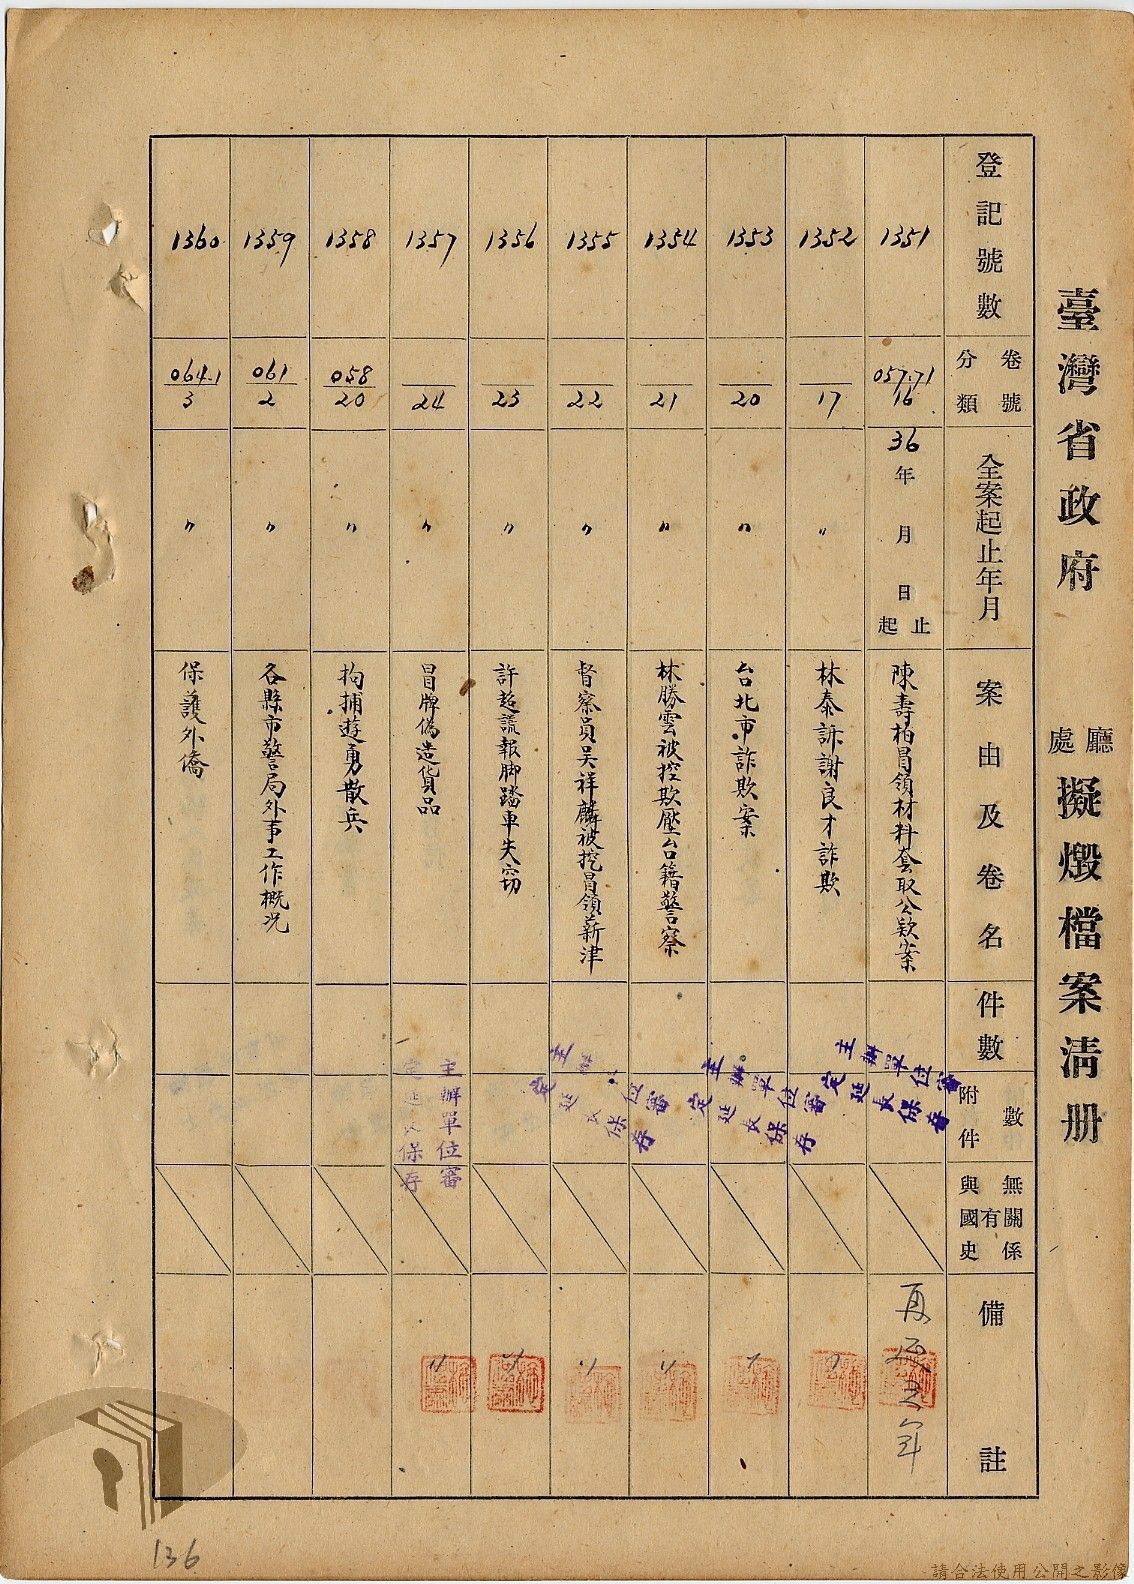 臺灣省政府 廳處 擬燬檔案清册
登記號數
分類 卷號
全案起止年月
案由及卷名
件數
附件數
與國史有無關係
備註
1351
057.71
16
36年 月 日 起止
陳壽柏冒領材料套取公款案
主辦單位審
定延長保存
1352
17
〃
林泰訴謝良才詐欺
1353
20
〃
台北市詐欺案
主辦單位審
定延長保存
1354
21
〃
林勝雲被控欺壓台籍警察
1355
22
〃
督察員吳祥麟被控冒領薪津
主辦 位審
定延長保存
1356
23
〃
許超謊報脚踏車失竊
1357
24
〃
冒牌偽造貨品
主辦單位審
定延長保存
1358
058
20
〃
拘捕遊勇散兵
1359
061
2
〃
各縣市警局外事工作概況
1360
064.1
3
〃
保護外僑
136
請合法使用公開之影像